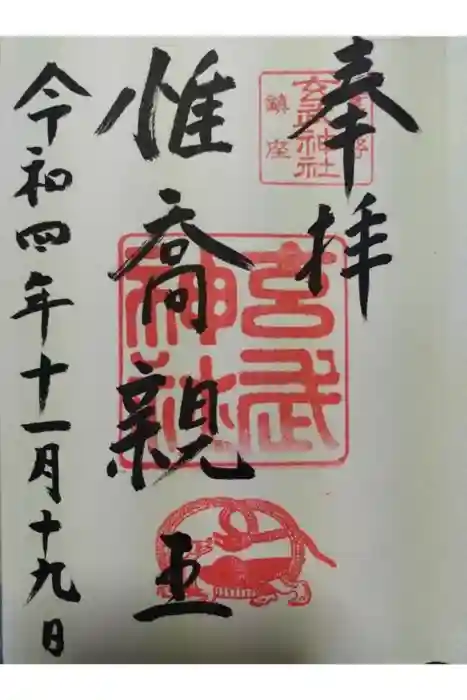 奉拝
惟喬親王
令和四年十一月十九日
玄武神社
鎮座
玄武神社